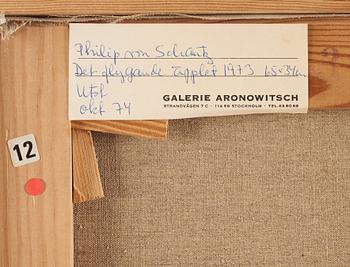 Philip von Schantz
Det flygande äpplet 1973 65x54cm
Utst
okt 74
GALERIE ARONOWITSCH
STRANDVÄGEN 7 C · 114 56 STOCKHOLM · TEL.
12